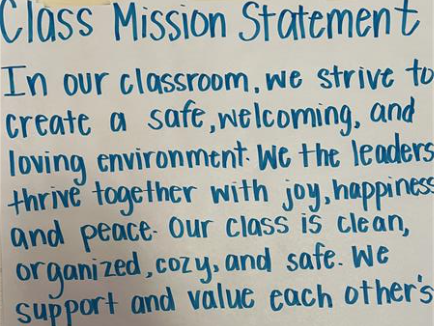 Class Mission Statement
In our classroom, we strive to
create a safe, welcoming, and
loving environment. We the leaders
thrive together with joy, happiness
and peace. Our class is clean,
organized, cozy, and safe. We
support and value each other's